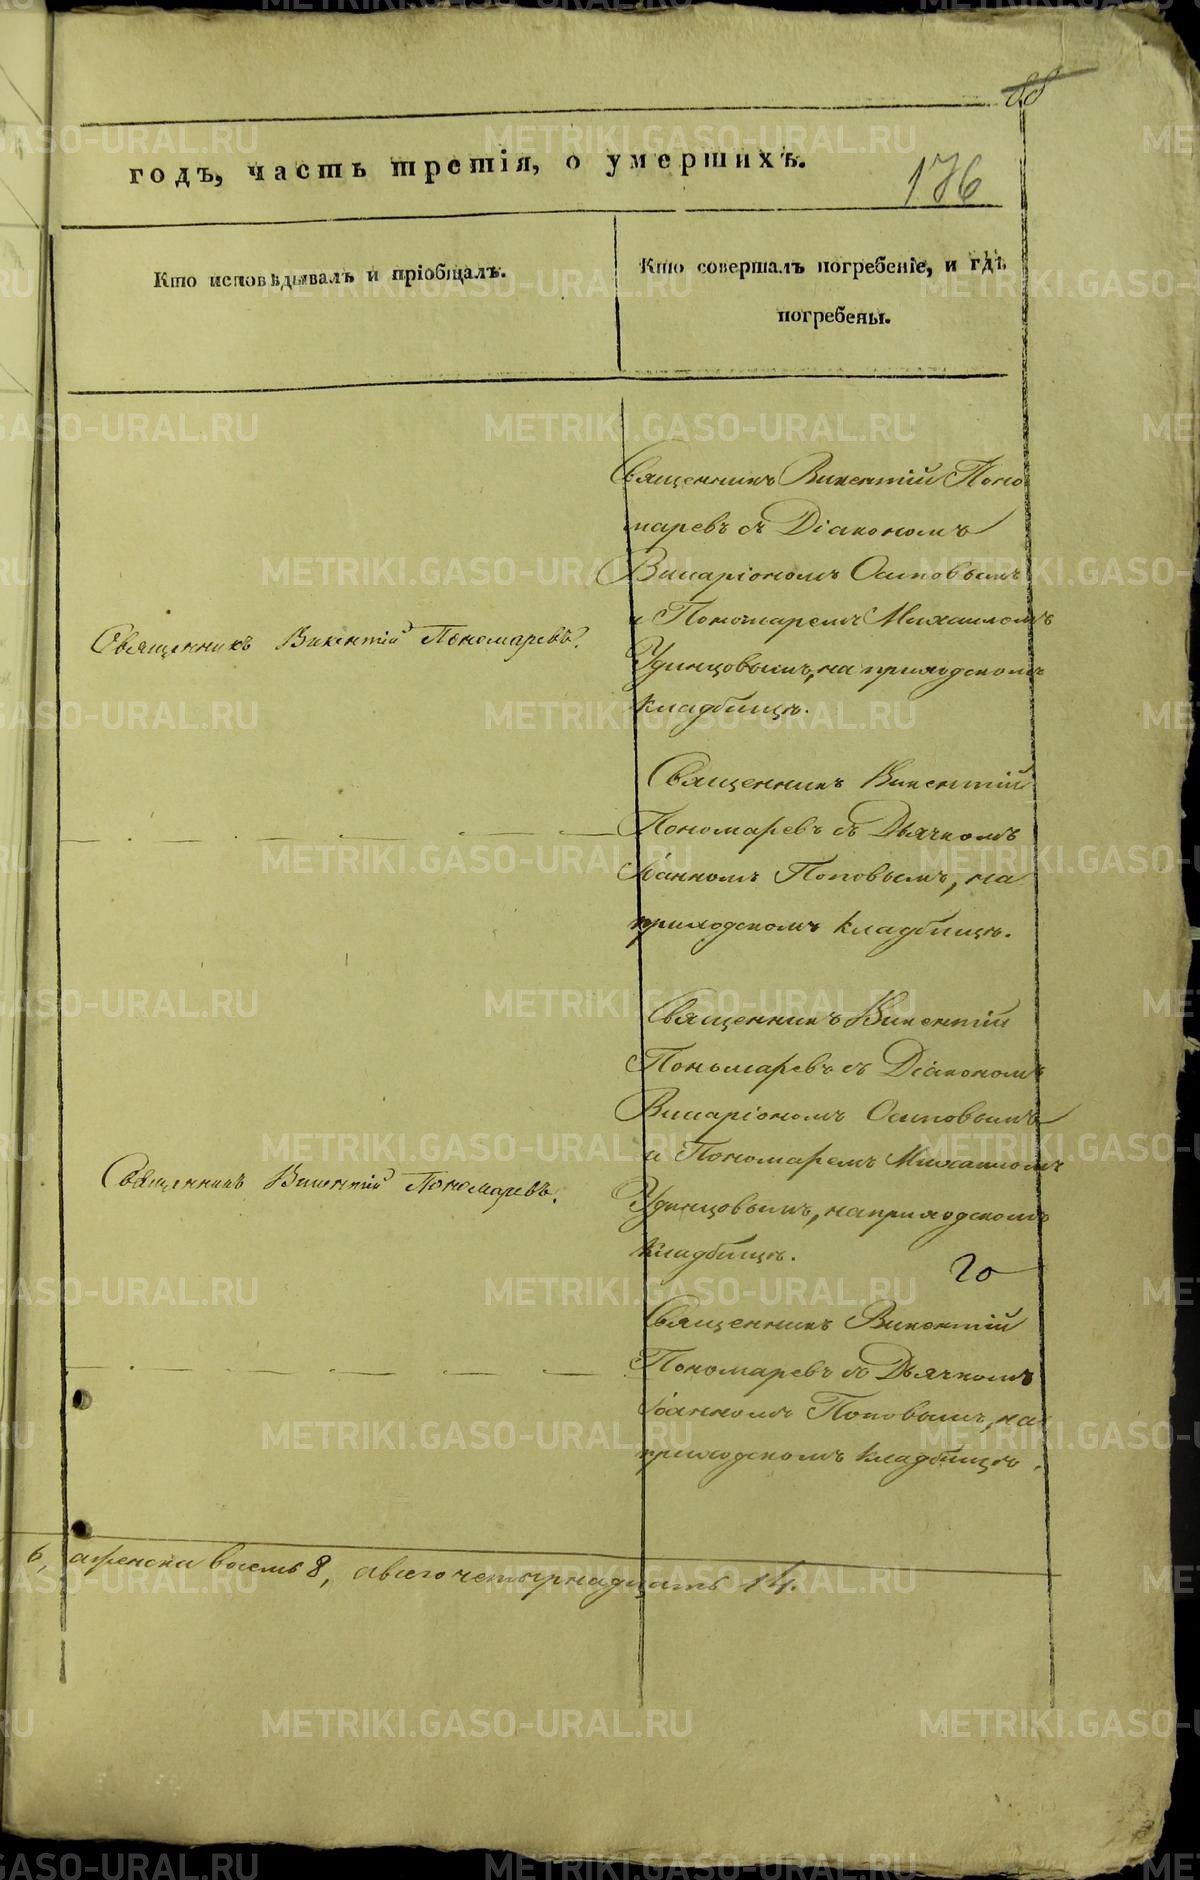 88
годъ, часть третія, о умершихъ.
176
Кто исповѣдывалъ и пріобщалъ.
Кто совершалъ погребеніе, и гдѣ
погребены.
Священникъ Викентій Поно
маревъ съ Діакономъ
Висаріономъ Осиповымъ
и Пономаремъ Михаиломъ
Удинцовымъ, на приходскомъ
кладбищѣ.
Священникъ Викентій Пономаревъ.
Священникъ Викентій
Пономаревъ съ Дьячкомъ
Іоанномъ Поповымъ, на
приходскомъ кладбищѣ.
Священникъ Викентій
Пономаревъ съ Діакономъ
Висаріономъ Осиповымъ
и Пономаремъ Михаиломъ
Удинцовымъ, на приходскомъ
кладбищѣ.
Священникъ Викентій Пономаревъ.
20
Священникъ Викентій
Пономаревъ съ Дьячкомъ
Іоанномъ Поповымъ, на
приходскомъ кладбищѣ.
6, а женска восемь 8, а всего четырнадцать 14.
METRIKI.GASO-URAL.RU